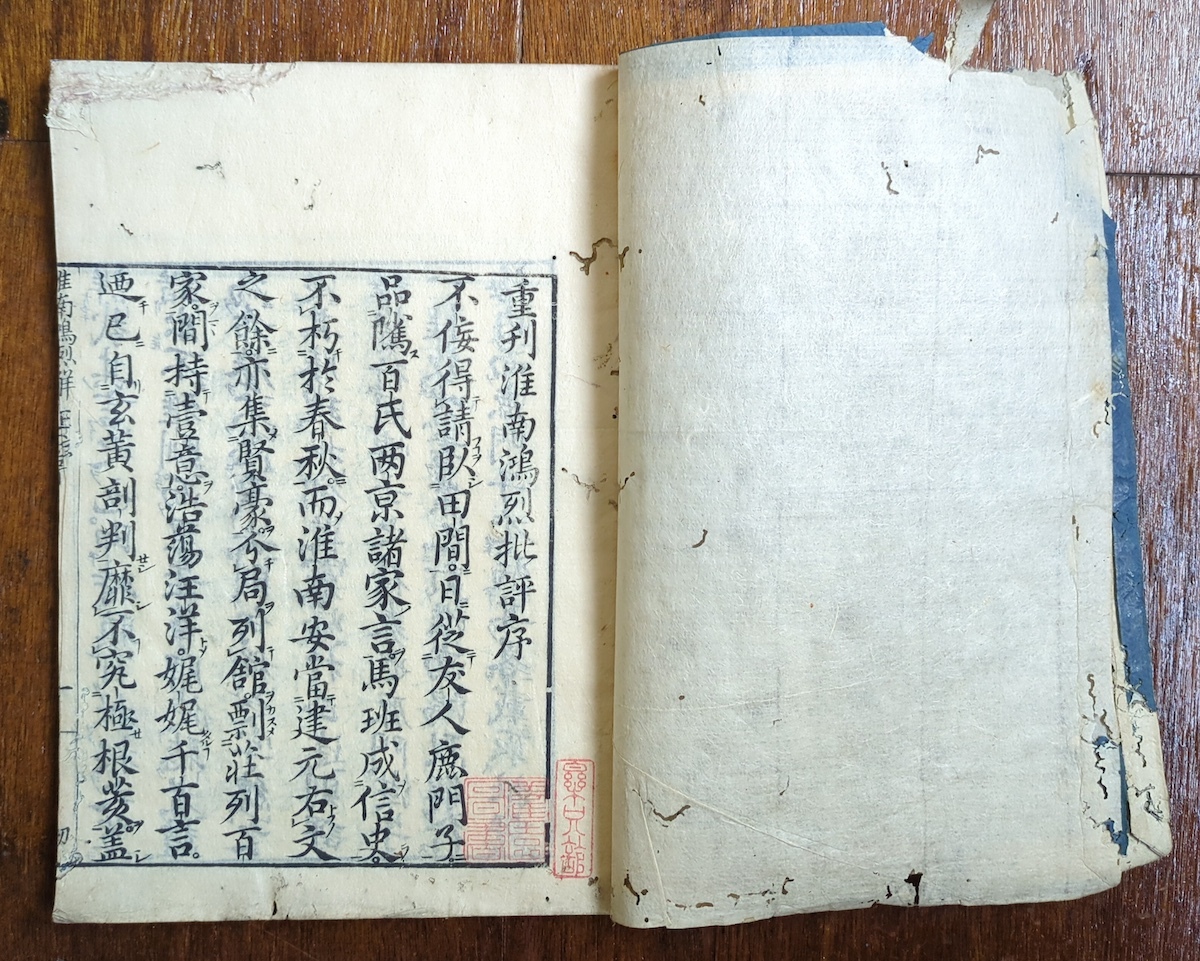 重刋淮南鴻烈批評序
不佞得請臥田間。日從友人鹿門子
品隲百氏两京諸家言。馬班成信史。
不朽於春秋。而淮南安當建元右文
之餘。亦集賢豪。分局列舘。剽莊列百
家。間持壹意。浩蕩汪洋。娓娓千百言。
迺已。自玄黃剖判。靡不究極根荄。盖
淮南鴻烈解